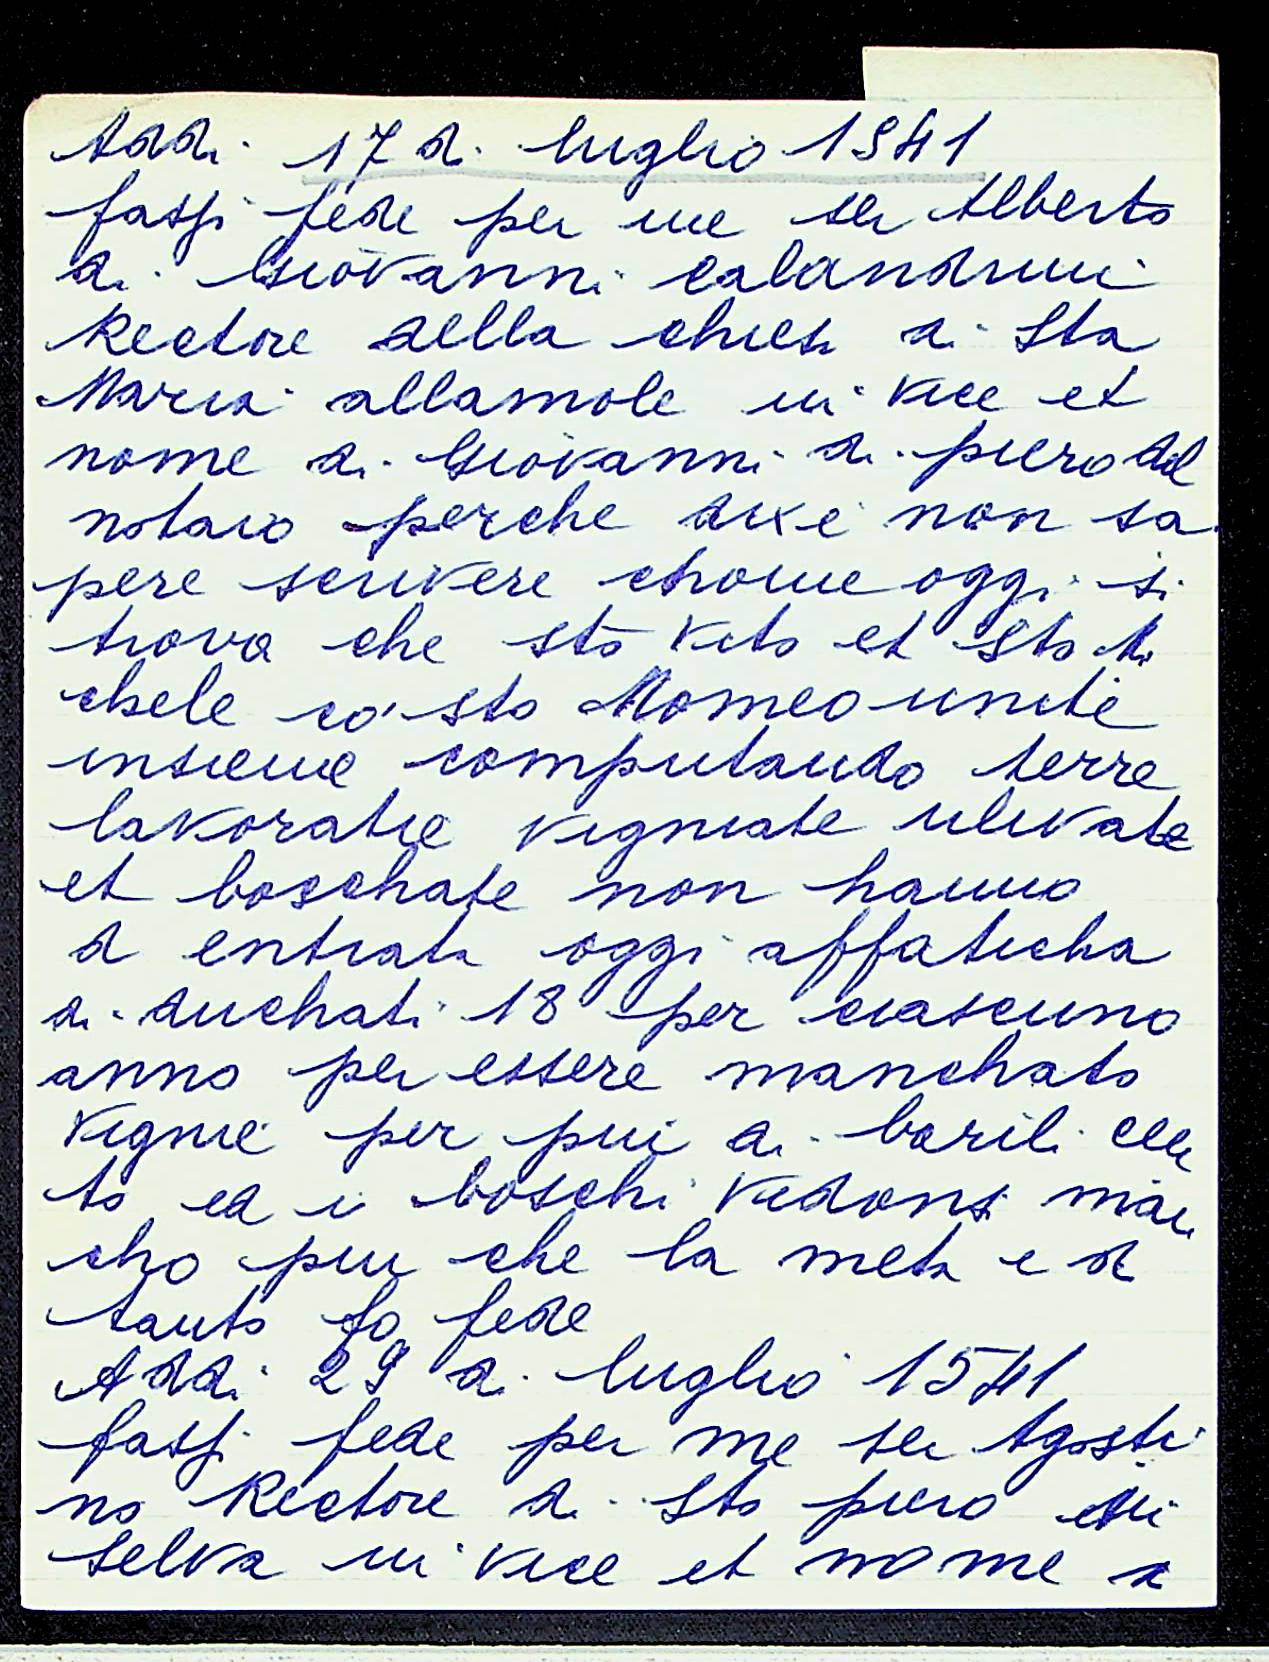 Addi 17 di luglio 1541
fassi fede per me ser Alberto
di Giovanni calandrini
Rectore della chiesa di Sta
Maria allamole in vice et
nome di Giovanni di piero del
notaio perche dixe non sa
pere scrivere chome oggi si
trova che sto vito et Sto Mi
chele co' sto Momeo unite
insieme computando terre
lavoratie vigniate ulivate
et boschate non hanno
d entrata oggi affaticha
di duchati 18 per ciascuno
anno per essere manchato
vignie per piu di barili cen
to ed i boschi vedonsi man
cho piu che la meta e di
tanto fo fede
Addi 29 di luglio 1541
fassi fede per me ser Agosti
no Rectore di Sto piero in
selva in vice et nome di